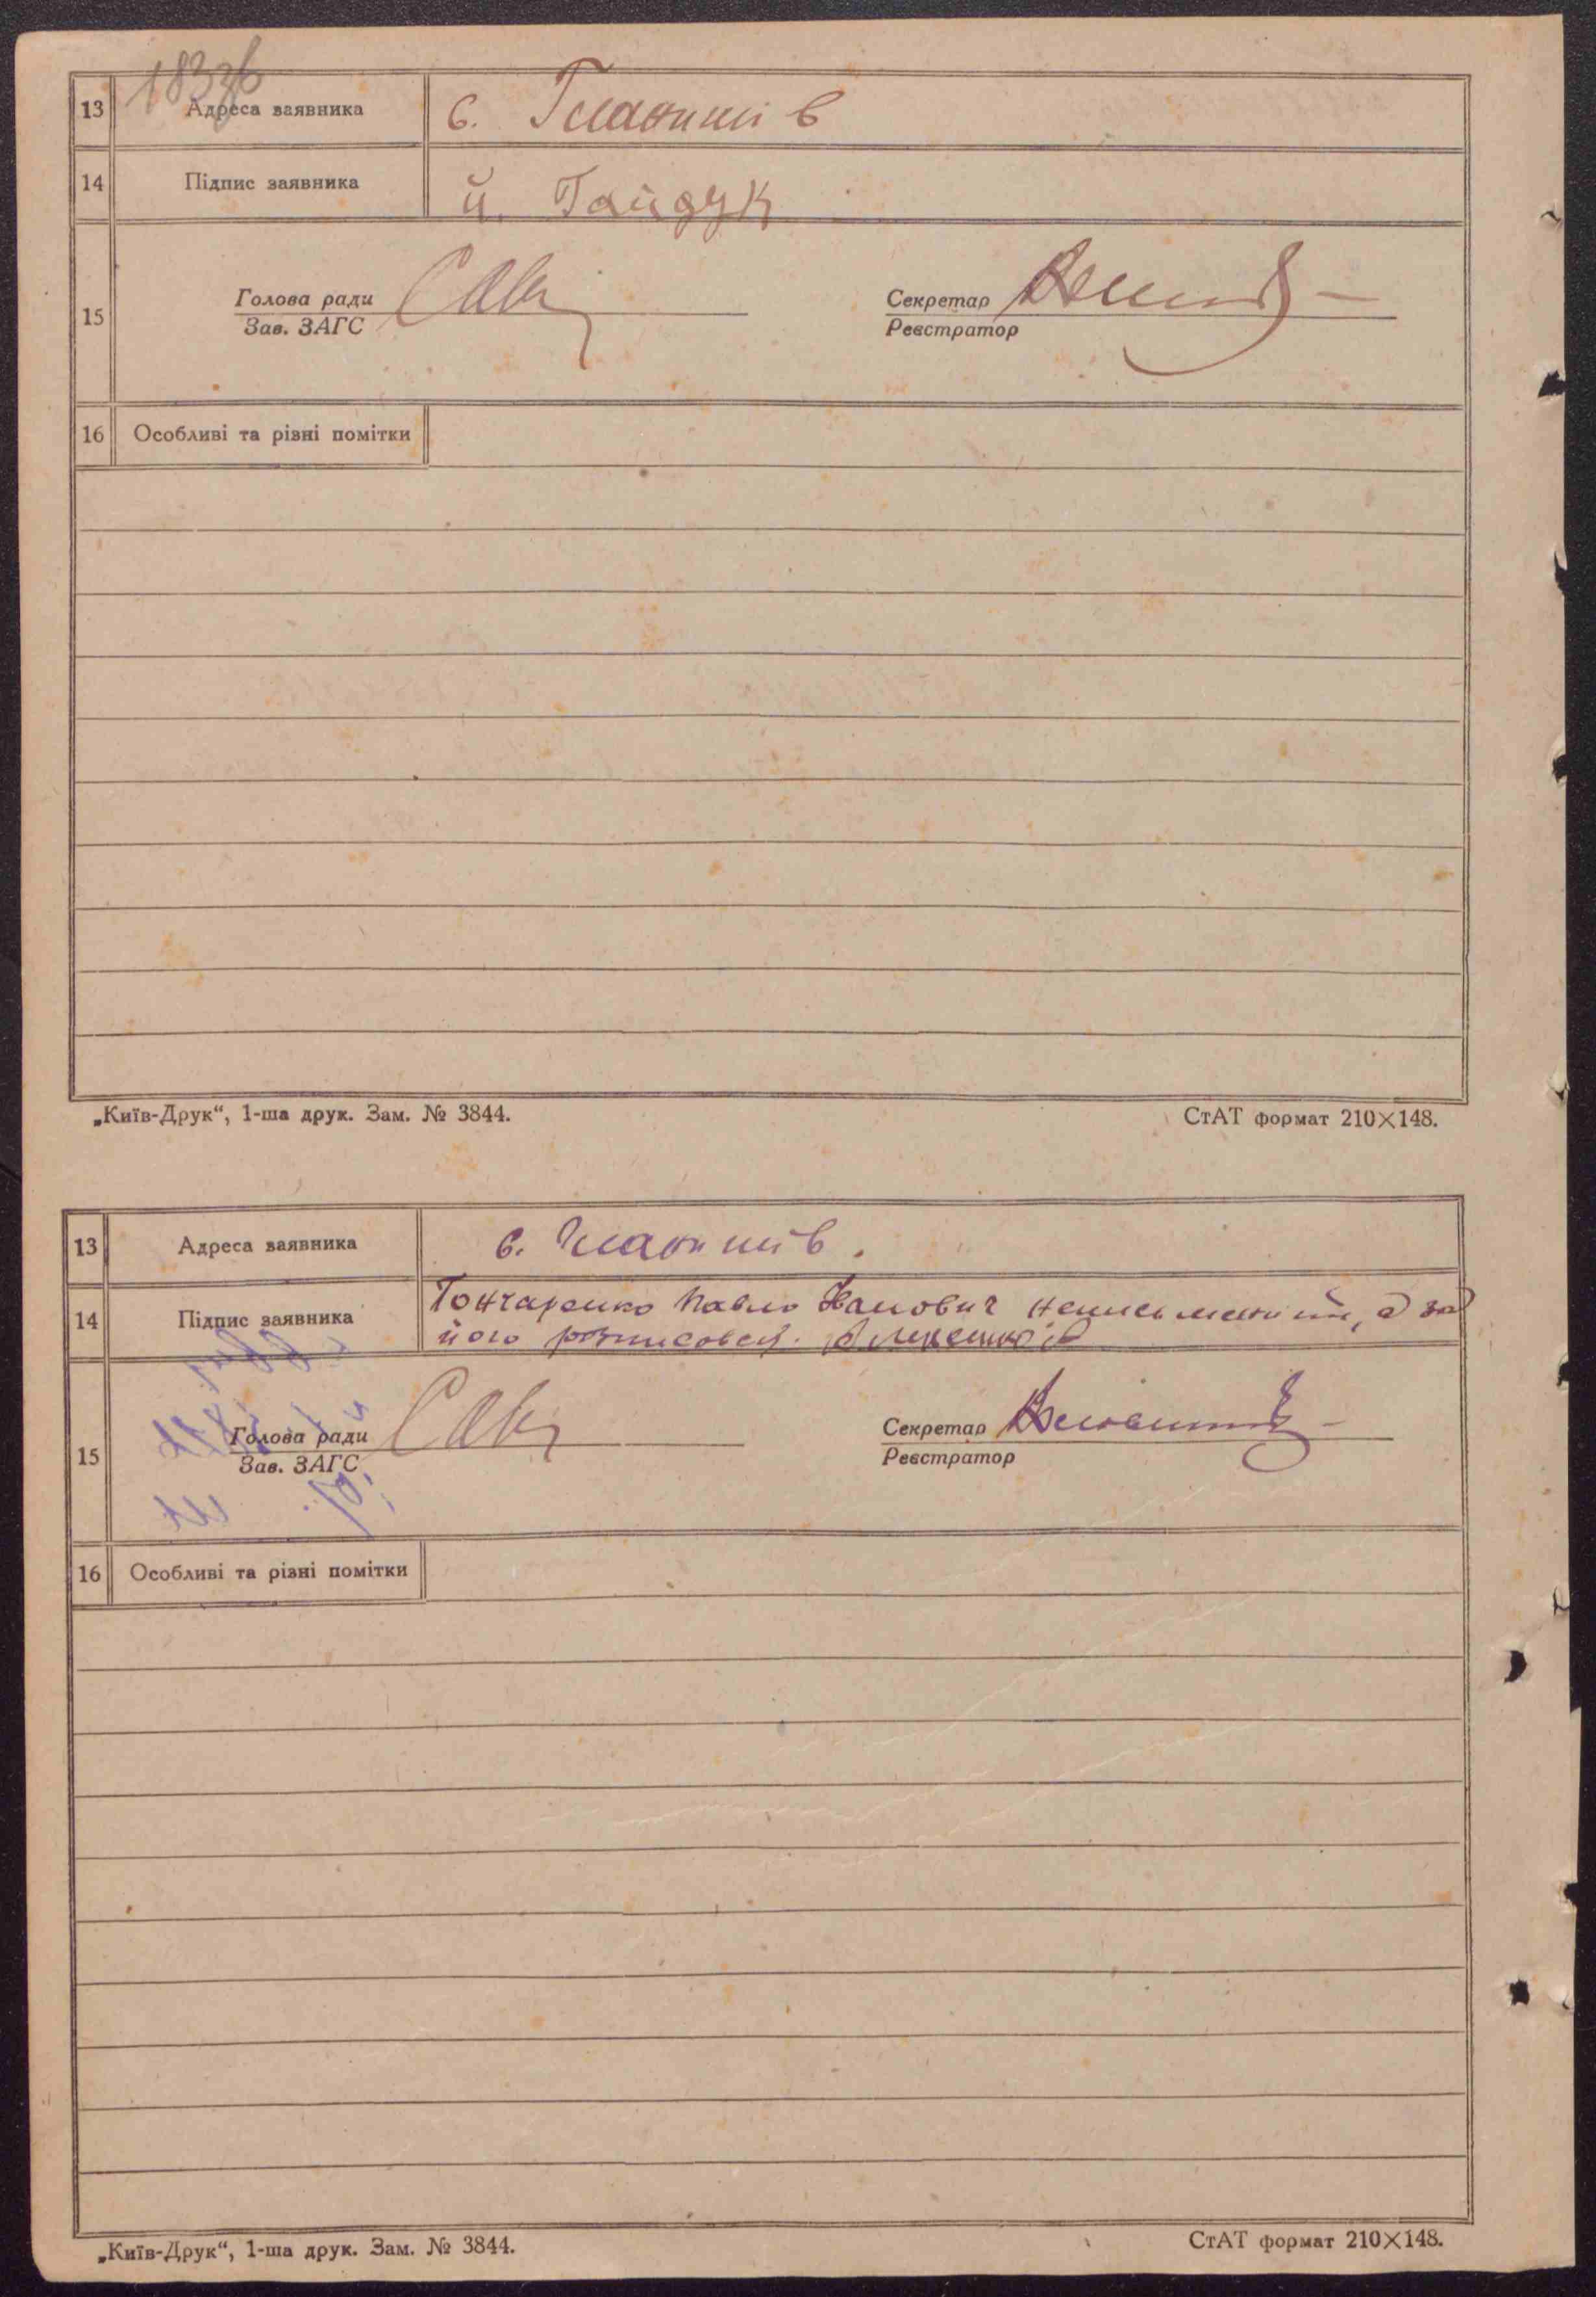 183зв
13 Адреса заявника с. Гланишів
14 Підпис заявника й. Гайдук
15 Голова ради Секретар
Зав. ЗАГС Реєстратор
16 Особливі та різні помітки
„Київ-Друк“, 1-ша друк. Зам. № 3844. СтАТ формат 210×148.
13 Адреса заявника с. Гланишів.
14 Підпис заявника Гончаренко Павло Іванович неписьменний, а за
його розписався
15 Голова ради Секретар
Зав. ЗАГС Реєстратор
16 Особливі та різні помітки
„Київ-Друк“, 1-ша друк. Зам. № 3844. СтАТ формат 210×148.